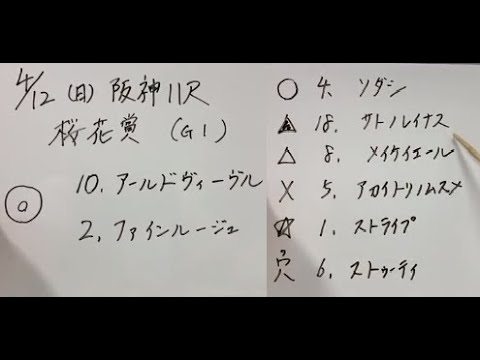 4/12 (日) 阪神11R
桜花賞 (G1)
◎ 10. アールドヴィーヴル
2. ファインルージュ
○ 4. ソダシ
▲ 18. サトノレイナス
△ 8. メイケイエール
X 5. アカイトリノムスメ
☆ 1. ストライプ
穴 6. ストゥーティ